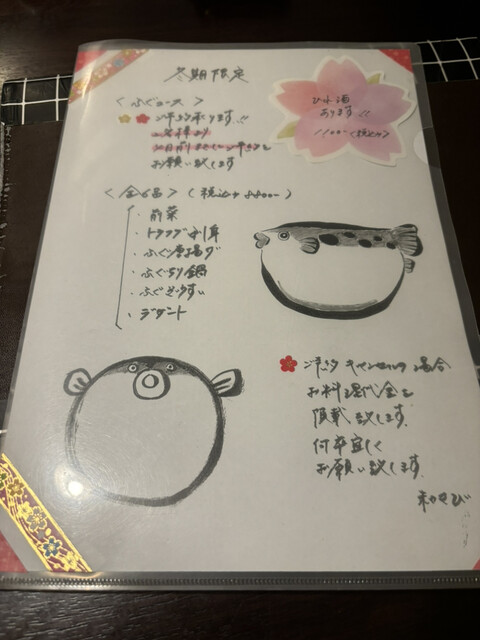 冬期限定
<ふぐコース>
ご予約承ります!!
2名様より
2日前までにご予約を
お願い致します
ひれ酒
あります!!
1100-(税込み)
<全6品> (税込み 8800-)
・前菜
・トラフグ刺し
・ふぐ唐揚げ
・ふぐちり鍋
・ふぐぞうすい
・デザート
ご予約 キャンセルの場合
お料理代金を
頂戴致します。
何卒宜しく
お願い致します。
和わび